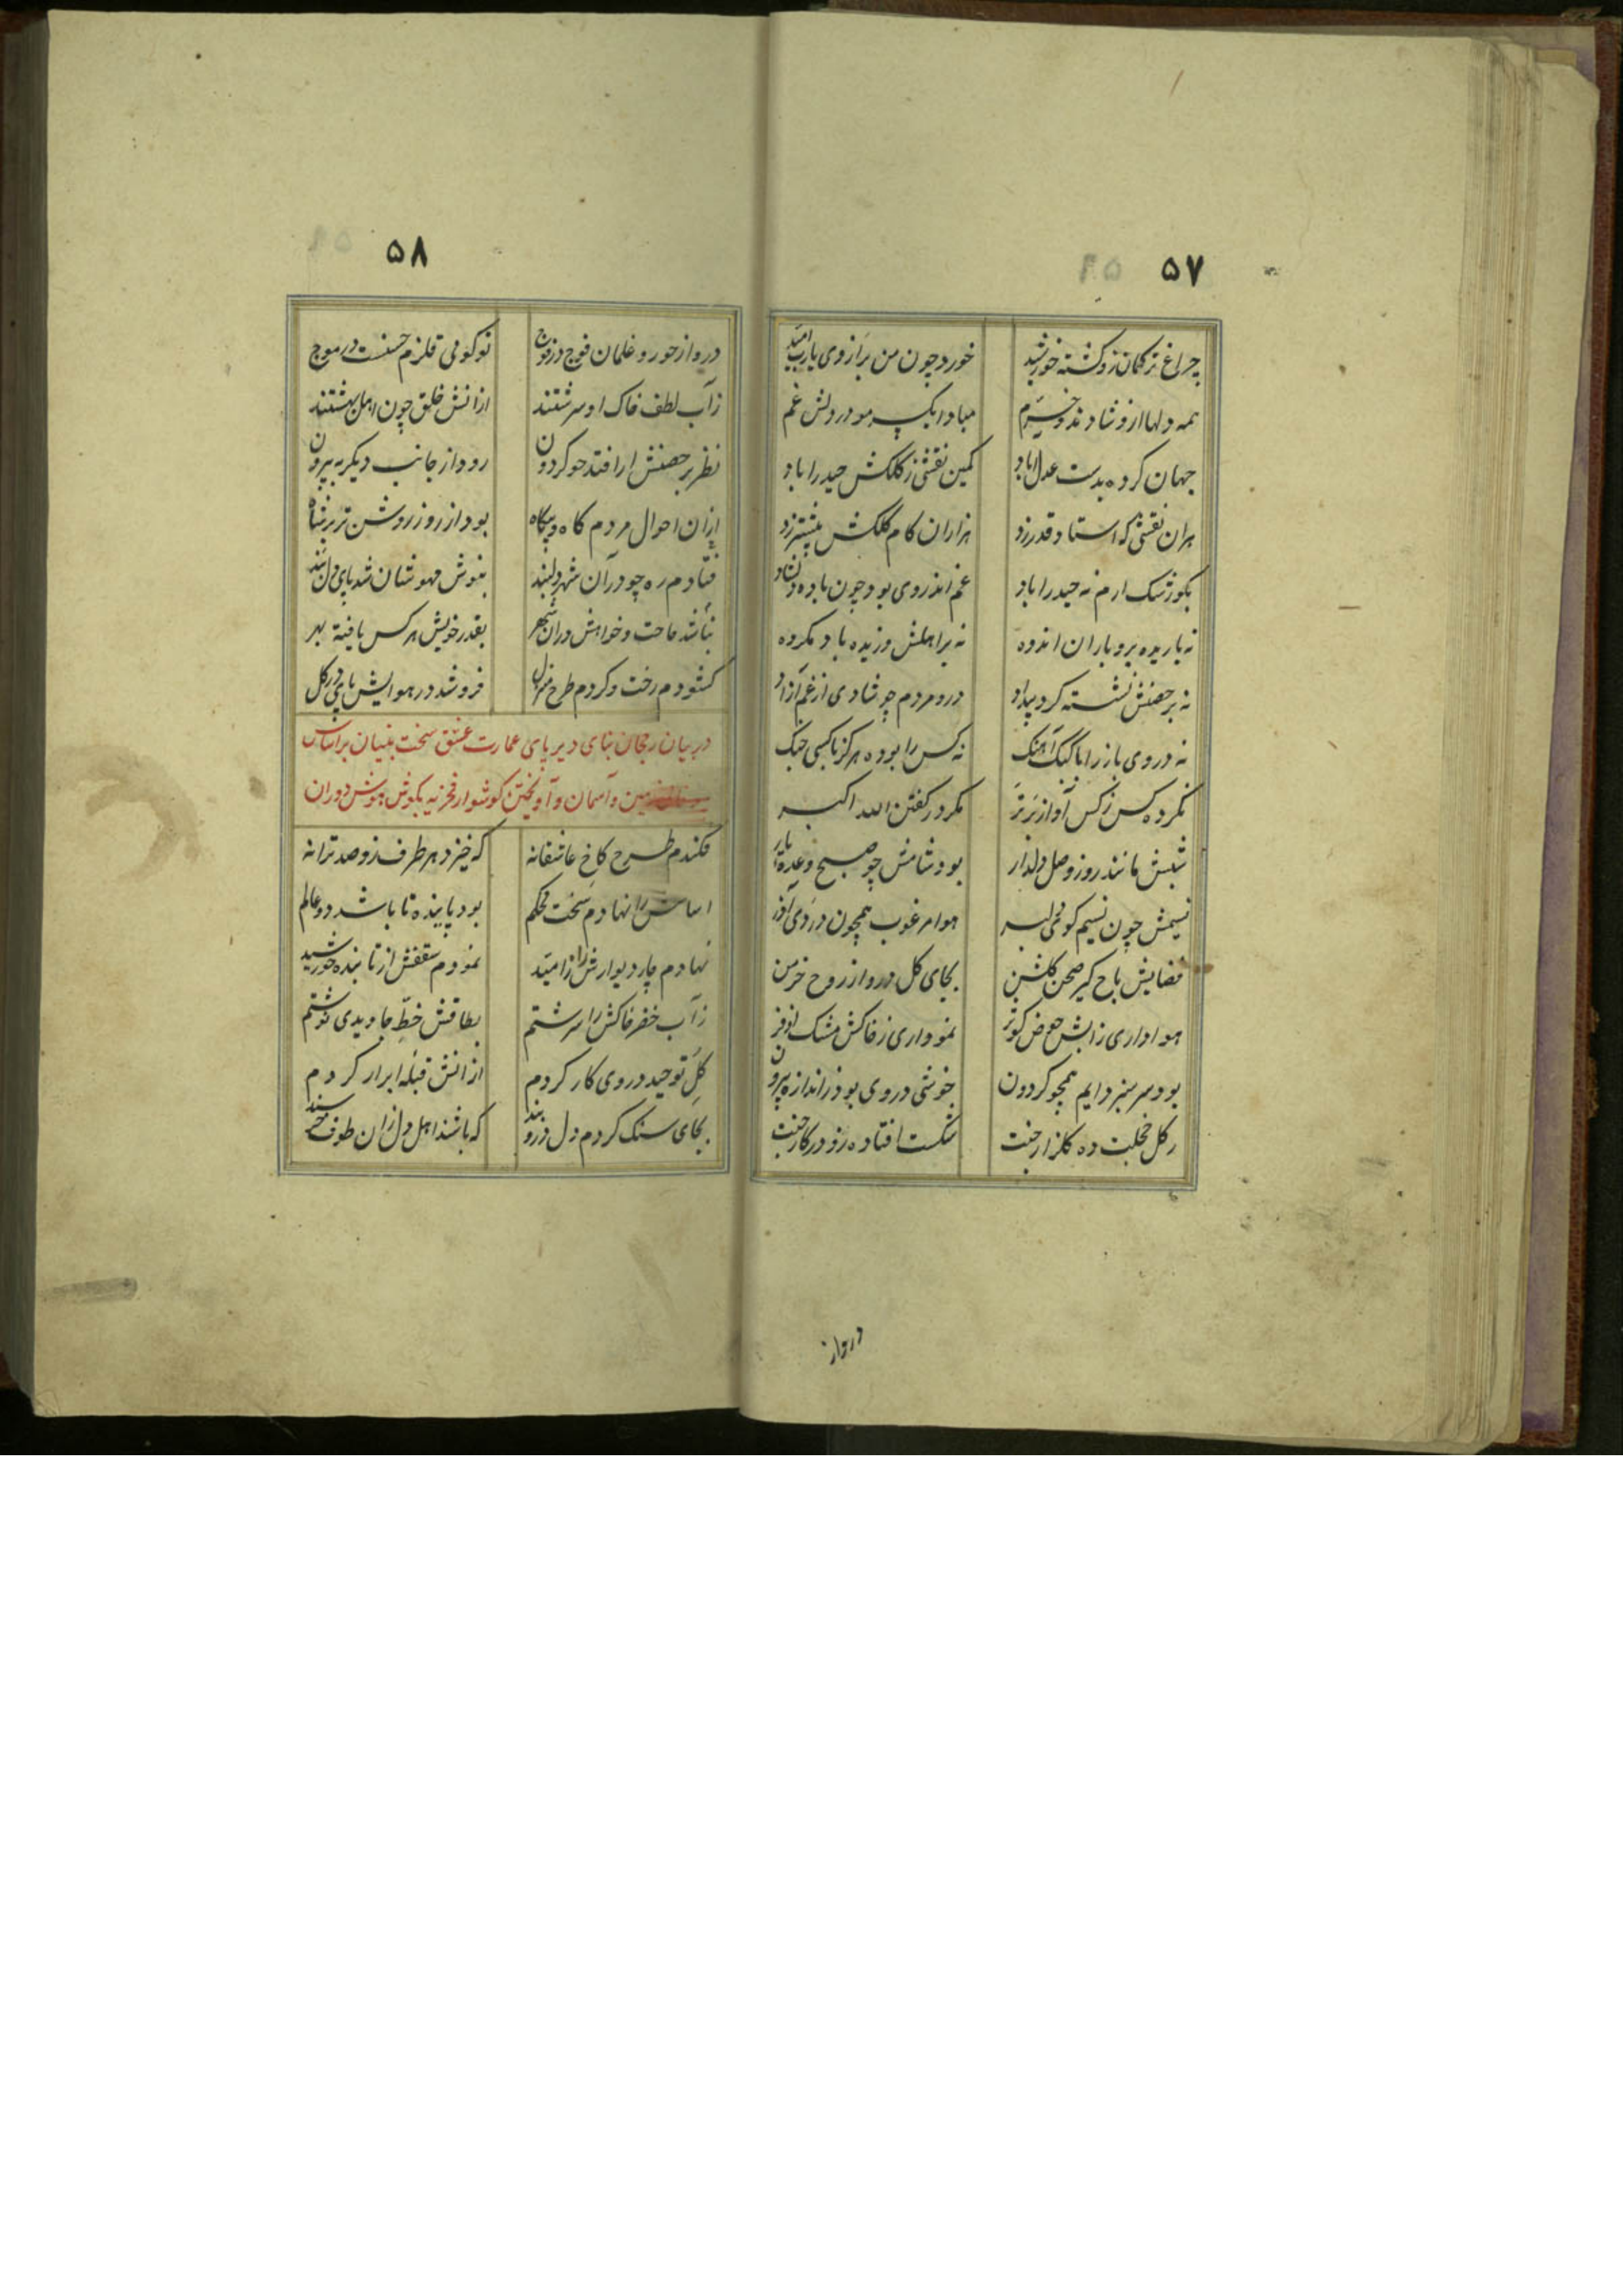 ۵۷
چراغ ترکمان زو گشته خورشید
خورد چون من بر از وی یارب امید
همه دلها ازو شادند و خرم
مبادا یک سر مو در دلش غم
جهان کرده بدست عدل اباد
کمین نقشی ز کلکش حیدراباد
هران نقشی که استاد قدر زد
هزاران کام کلکش پیشتر زد
بکو رشک ارم نه حیدراباد
غم اندر وی بود چون باده
نه باریده برو باران اندوه
نه بر اهلش وزیده باد مکروه
نه بر حصنش نشسته کرد بیداد
درو مردم چو شادی از غم آزاد
نه در وی باز را با کبک آهنک
نه کس را بوده هرکز با کسی جنک
نکرده کس ز کس آواز برتر
مکر در کفتن الله اکبر
شبش مانند روز وصل دلدار
بود شامش چو صبح وعده یار
نسیمش چون نسیم کوی دلبر
هوا مرغوب همچون در دی آذر
فضایش باج کیر صحن کلشن
بجای کل درو از روح خرمن
هواداری ز ابش حوض کوثر
نموداری ز خاکش مشک اذفر
بود سرسبز دایم همچو کردون
خوشی در وی بود ز اندازه بیرون
ز کل خجلت ده کلزار جنت
شکست افتاده زو در کار جنت
درو از
۵۸
درو از حور و غلمان فوج در فوج
تو کوئی قلزم حسنست در موج
ز آب لطف خاک او سرشتند
ازانش خلق چون اهل بهشتند
نظر بر حصنش ار افتد چو کردون
رود از جانب دیکر به بیرون
ازان احوال مردم کاه و بیکاه
بود از روز روشن تر بر شاه
فتادم ره چو در آن شهر دلبند
بنوش مهوشان شد پای دل بند
نباشد حاجت و خواهش دران شهر
بقدر خویش هر کس یافته بهر
کشودم رخت و کردم طرح منزل
فرو شد در هوایش پای در کل
در بیان رجحان بنای دیر پای عمارت عشق سخت بنیان بر اساس
زمین و آسمان و آویختن کوشوار فخریه بکوش هوش دوران
فکندم طرح کاخ عاشقانه
که خیزد هر طرف زو صد ترانه
اساسش را نهادم سخت محکم
بود پاینده تا باشد دو عالم
نهادم چار دیوارش ز امید
نمودم سقفش از تابنده خورشید
ز آب خضر خاکش را سرشتم
بطاقش خطّ جاویدی نوشتم
کل توحید در وی کار کردم
ازانش قبله ابرار کردم
بجای سنک کردم دل درو بند
که باشند اهل دل زان طوف خرسند